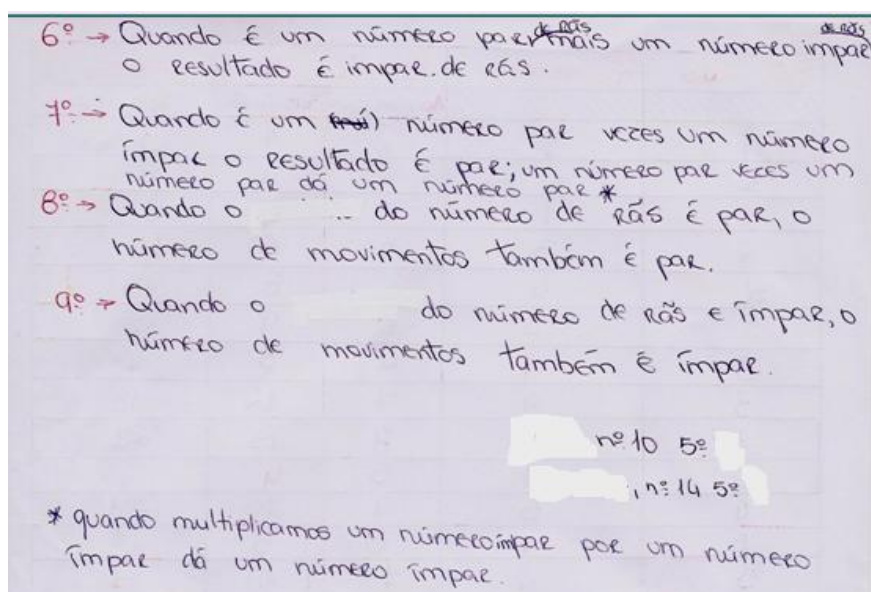 6º → Quando é um número par de rãs mais um número impar de rãs
o resultado é impar. de rãs.
7º → Quando é um número par vezes um número
ímpar o resultado é par; um número par vezes um
número par dá um número par *
8º → Quando o do número de rãs é par, o
número de movimentos também é par.
9º → Quando o do número de rãs e ímpar, o
número de movimentos também é ímpar.
nº 10 5º
, nº 14 5º
* quando multiplicamos um número impar por um número
ímpar dá um número ímpar.